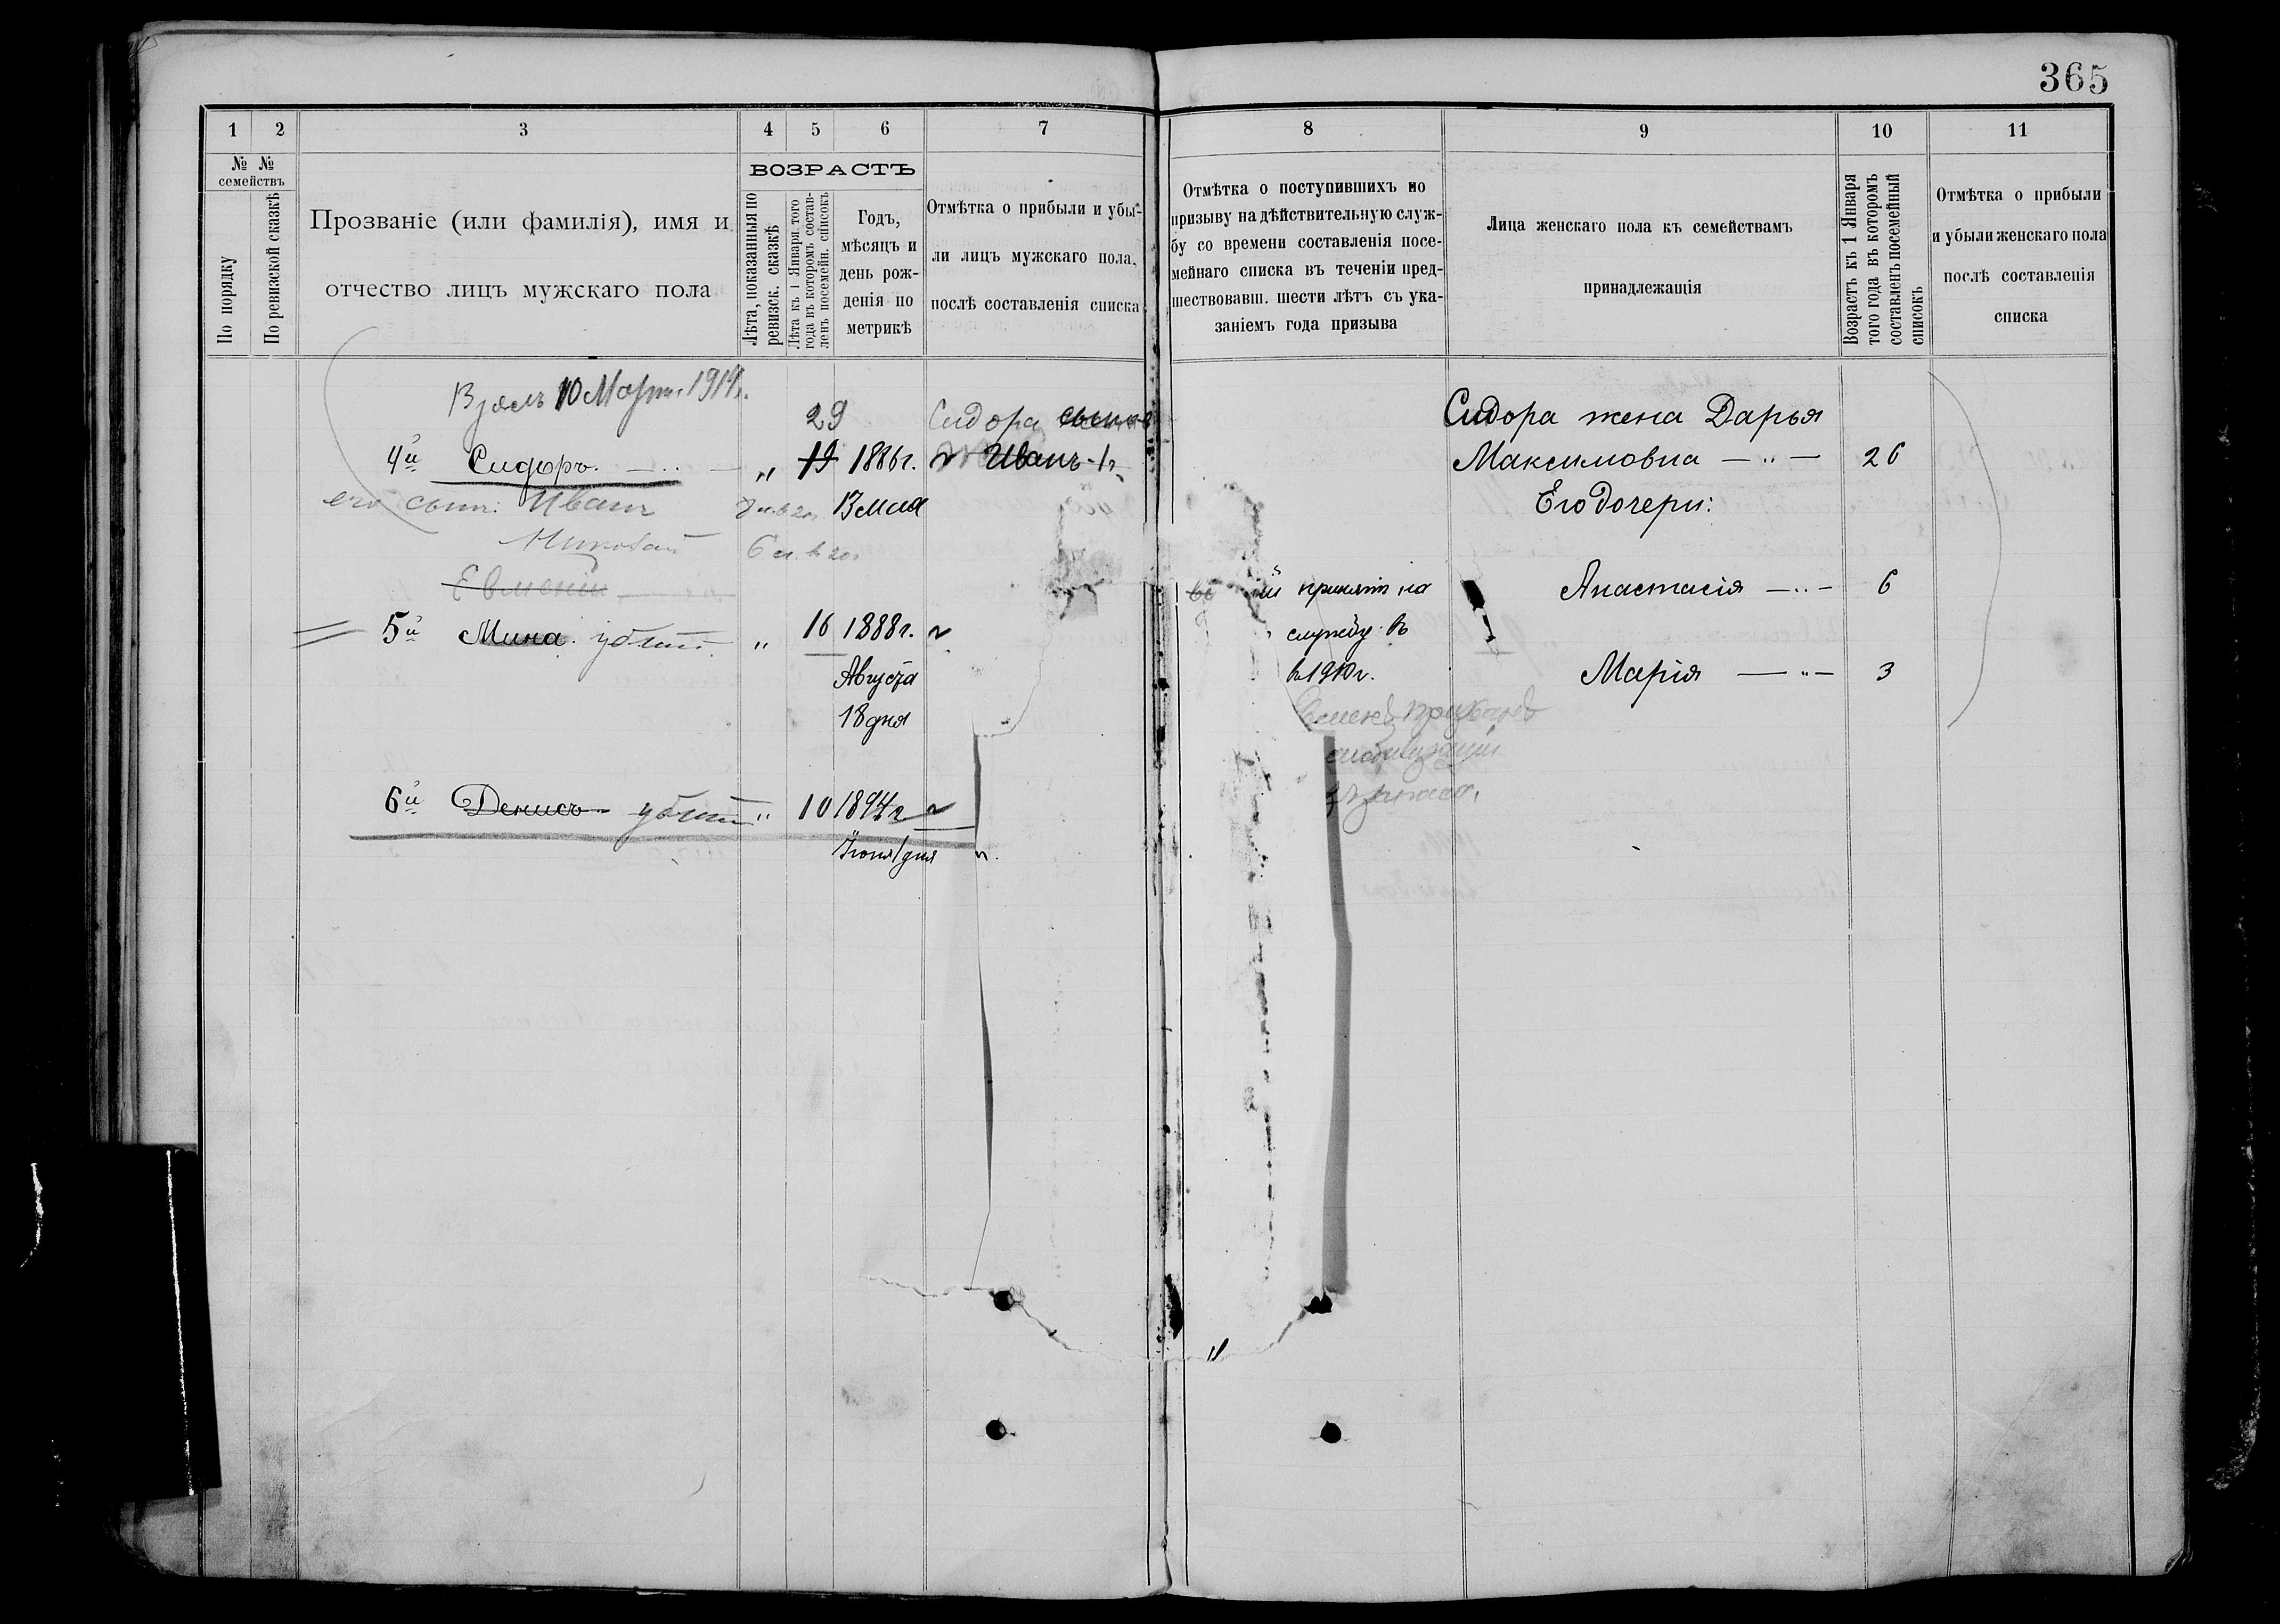 365
1 2 3 4 5 6 7 8 9 10 11
№ №
семействъ
По порядку
По ревизской сказкѣ
Прозваніе (или фамилія), имя и
отчество лицъ мужскаго пола
ВОЗРАСТЪ
Лѣта, показанныя по
ревизск. сказкѣ
Лѣта къ 1 Января того
года въ которомъ состав-
ленъ посемейн. списокъ
Годъ,
мѣсяцъ и
день рож-
денія по
метрикѣ
Отмѣтка о прибыли и убы-
ли лицъ мужскаго пола,
послѣ составленія списка
Отмѣтка о поступившихъ по
призыву на дѣйствительную служ-
бу со времени составленія посе-
мейнаго списка въ теченіи пред-
шествовавш. шести лѣтъ съ ука-
заніемъ года призыва
Лица женскаго пола къ семействамъ
принадлежащія
Возрастъ къ 1 Января
того года въ которомъ
составленъ посемейный
списокъ
Отмѣтка о прибыли
и убыли женскаго пола
послѣ составленія
списка
10 Март. 1914.
29 Сидора
4й Сидоръ. — „ 19 1886г. Иванъ
его сын: Иванъ 13 мая
Николай
5й Мина. убит. „ 16 1888г.
Августа
18 дня
6й Денисъ убит „ 10 1894г
Іюня 1 дня
принятъ на
службу въ
в 1910г.
Сидора жена Дарья
Максимовна — „ — 26
Его дочери:
Анастасія — „ — 6
Марія — „ — 3